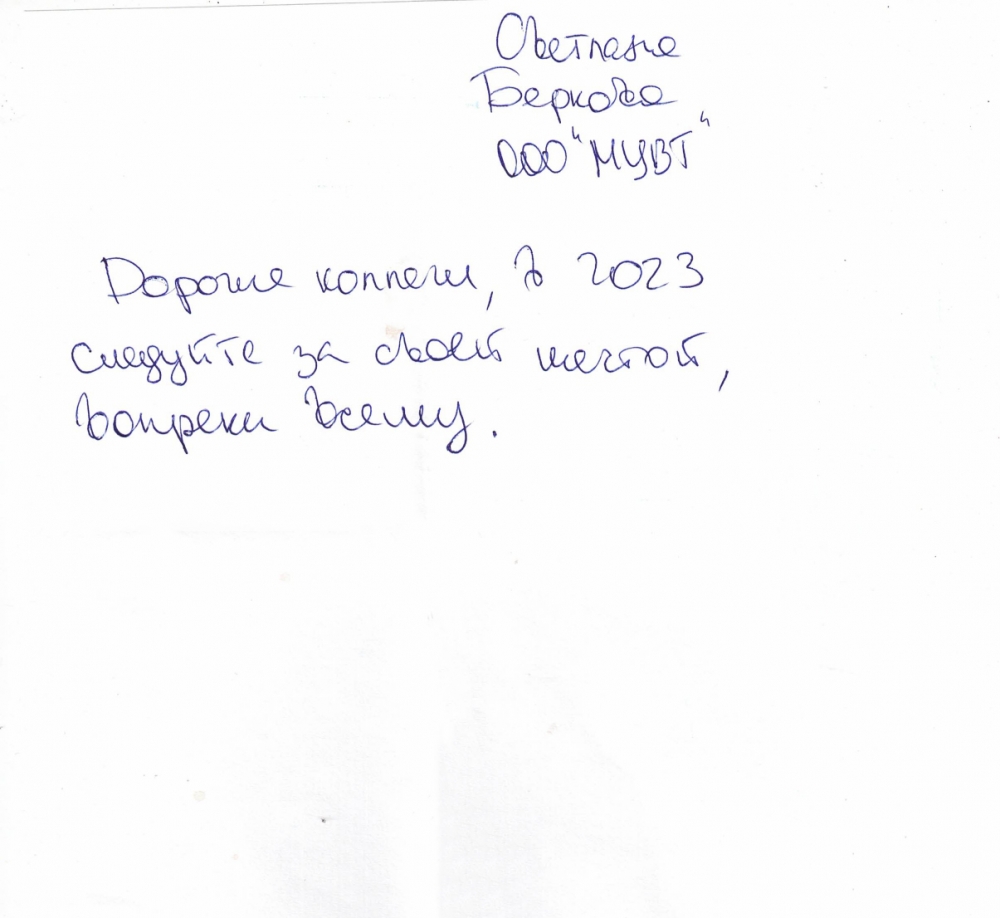 Светлана
Беркова
ООО "МЦВТ"
Дорогие коллеги, в 2023
следуйте за своей мечтой,
вопреки всему.